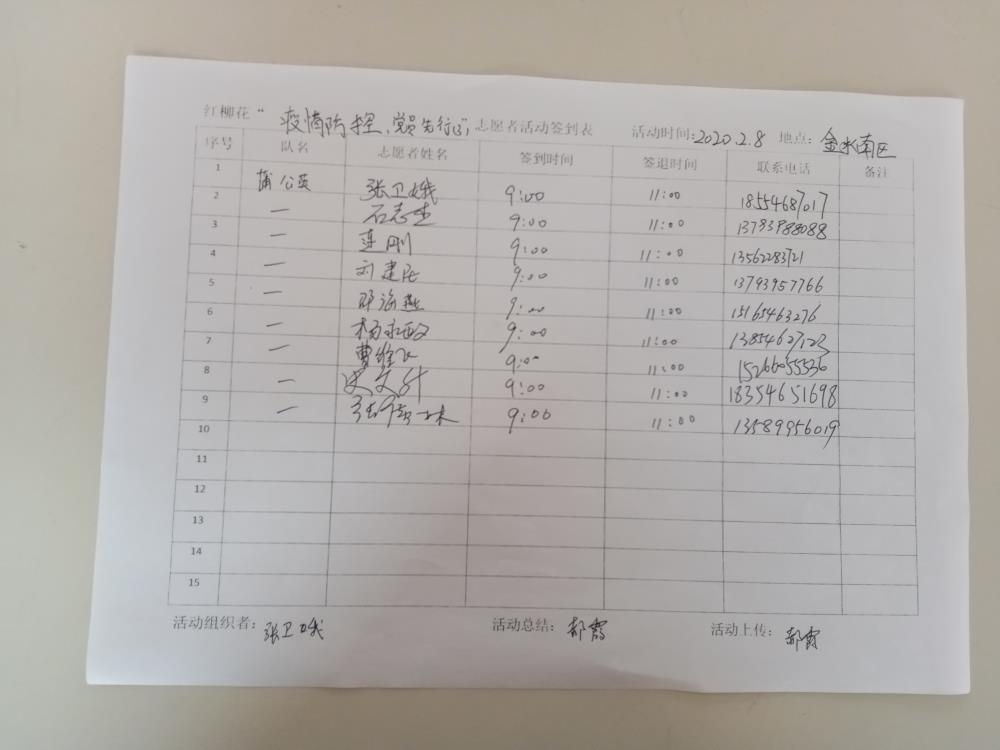 红柳花“疫情防控,党员先行(3)”志愿者活动签到表 活动时间:2020.2.8 地点:金水南区
序号 队名 志愿者姓名 签到时间 签退时间 联系电话 备注
1 蒲公英 张卫娥 9:00 11:00 18554687017
2 — 石志生 9:00 11:00 13783988088
3 — 连刚 9:00 11:00 13562283721
4 — 刘建民 9:00 11:00 13793957766
5 — 邓海燕 9:00 11:00 15165463276
6 — 杨永政 9:00 11:00 13854627123
7 — 曹维飞 9:00 11:00 15266055536
8 — 史文 9:00 11:00 18354651698
9 — 9:00 11:00 13589956019
10
11
12
13
14
15
活动组织者:张卫娥 活动总结:郝霞 活动上传:郝霞